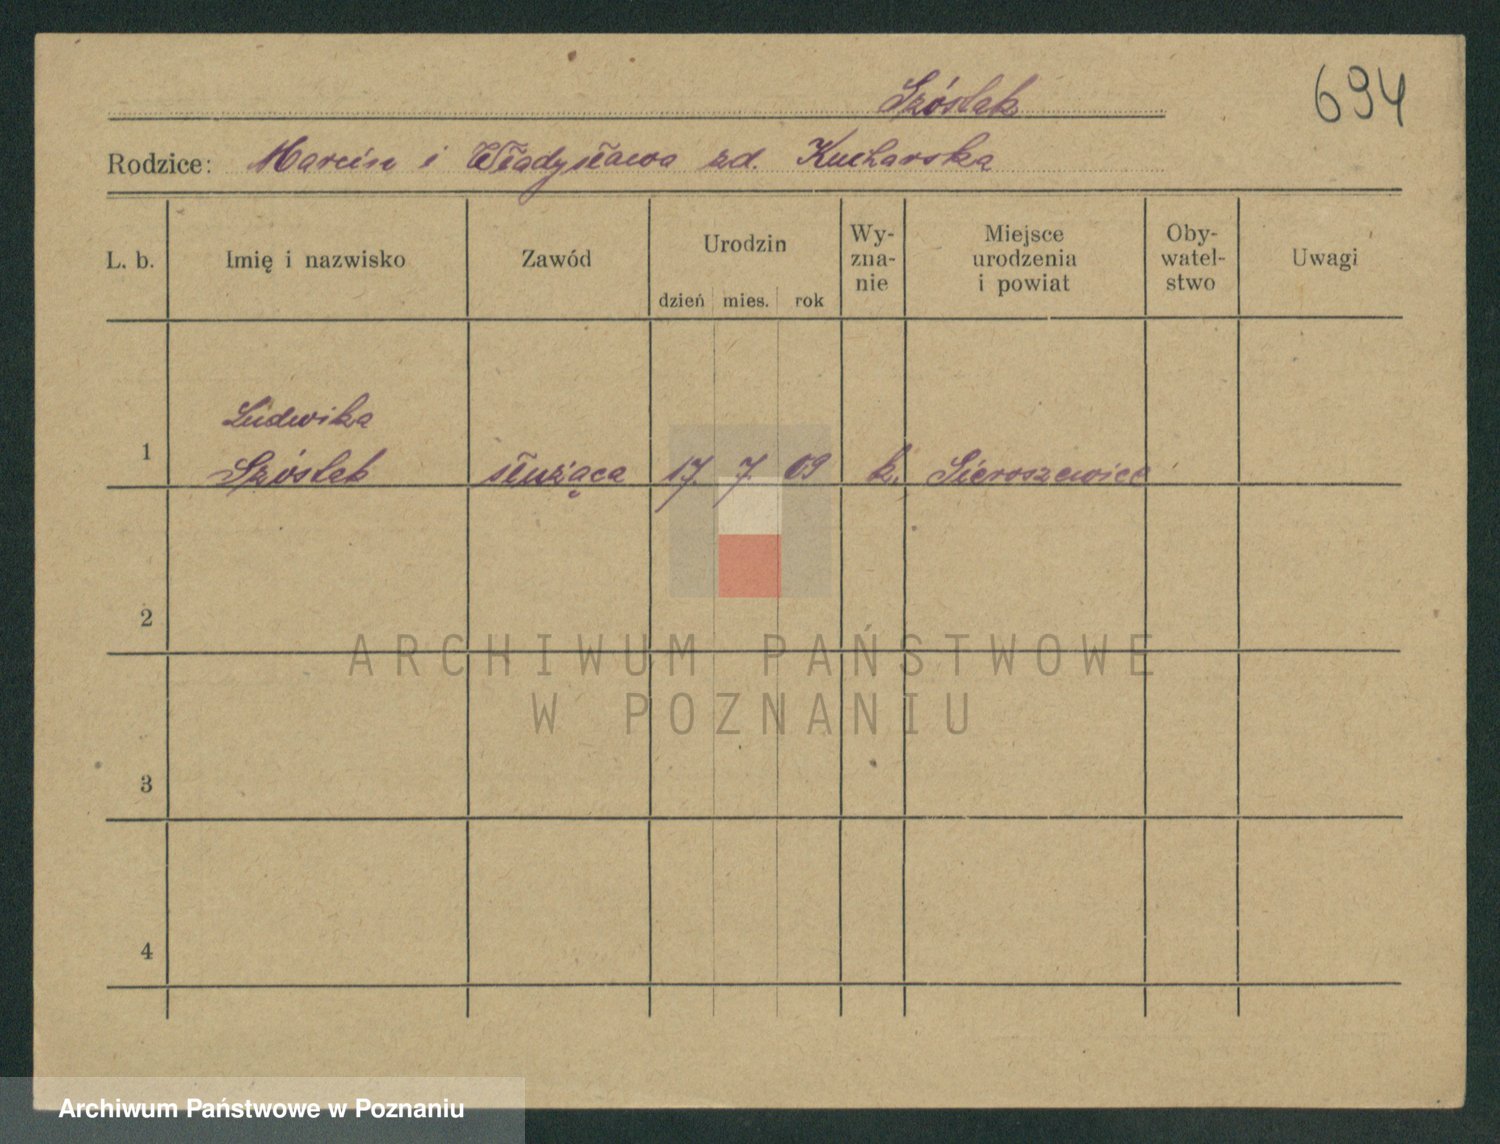 Szóstak
694
Rodzice: Marcin i Władysława zd. Kucharska
L. b.
Imię i nazwisko
Zawód
Urodzin
dzień mies. rok
Wy-
zna-
nie
Miejsce
urodzenia
i powiat
Oby-
watel-
stwo
Uwagi
1
Ludwika
Szóstak
służąca
17. 7. 09
k.
Sieroszewice
2
ARCHIWUM PAŃSTWOWE
W POZNANIU
3
4
Archiwum Państwowe w Poznaniu